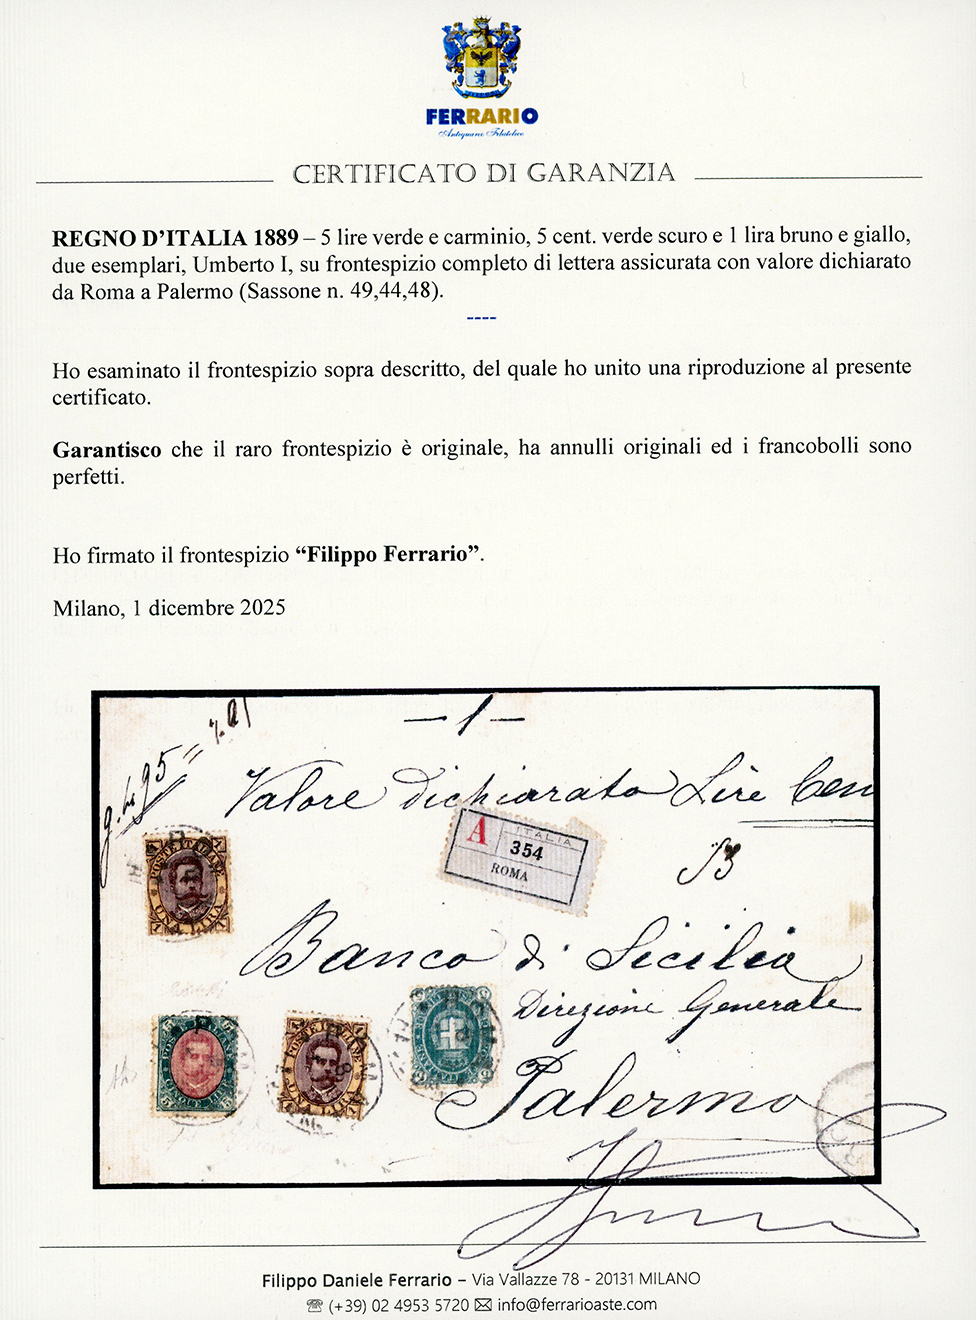 FERRARIO
Antiquario Filatelico
CERTIFICATO DI GARANZIA
REGNO D’ITALIA 1889 – 5 lire verde e carminio, 5 cent. verde scuro e 1 lira bruno e giallo,
due esemplari, Umberto I, su frontespizio completo di lettera assicurata con valore dichiarato
da Roma a Palermo (Sassone n. 49,44,48).
----
Ho esaminato il frontespizio sopra descritto, del quale ho unito una riproduzione al presente
certificato.
Garantisco che il raro frontespizio è originale, ha annulli originali ed i francobolli sono
perfetti.
Ho firmato il frontespizio “Filippo Ferrario”.
Milano, 1 dicembre 2025
— 1 —
Valore dichiarato Lire Cen
A ITALIA
354
ROMA
POSTE ITALIANE
UNA LIRA
Banco di Sicilia
Direzione Generale
Palermo
POSTE ITALIANE
UNA LIRA
Filippo Daniele Ferrario – Via Vallazze 78 - 20131 MILANO
☏ (+39) 02 4953 5720 ✉ info@ferrarioaste.com